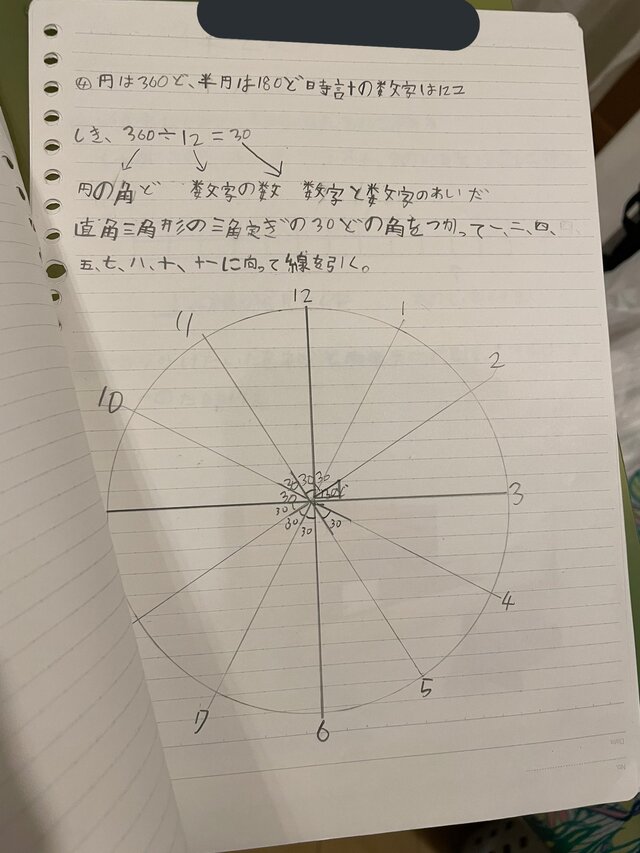 ④円は360ど、半円は180ど時計の数字は12コ
しき、360÷12=30
円の角ど 数字の数 数字と数字のあいだ
直角三角形の三角定ぎの30どの角をつかって一、二、四、
五、七、八、十、十一に向って線を引く。
12
11
1
2
10
30
30
30
30
30ど
3
30
30
30
30
4
5
7
6